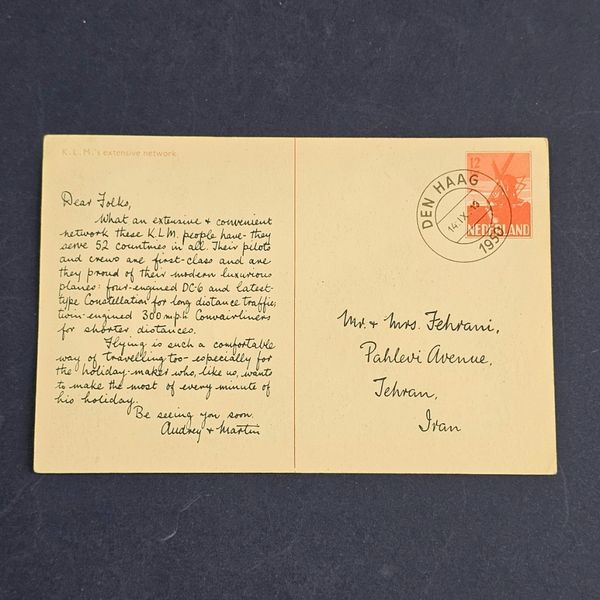 K.L.M.'s extensive network
Dear Folks,
What an extensive & convenient
network these K.L.M. people have - they
serve 52 countries in all. Their pilots
and crews are first-class and are
they proud of their modern luxurious
planes: four-engined DC-6 and latest-
type Constellation for long distance traffic;
twin-engined 300 mph Convairliners
for shorter distances.
Flying is such a comfortable
way of travelling too - especially for
the holiday-maker who, like us, wants
to make the most of every minute of
his holiday.
Be seeing you soon.
Audrey & Martin
12
NEDERLAND
DEN HAAG
14.IX.
1950
Mr. & Mrs. Tehrani,
Pahlevi Avenue,
Tehran,
Iran